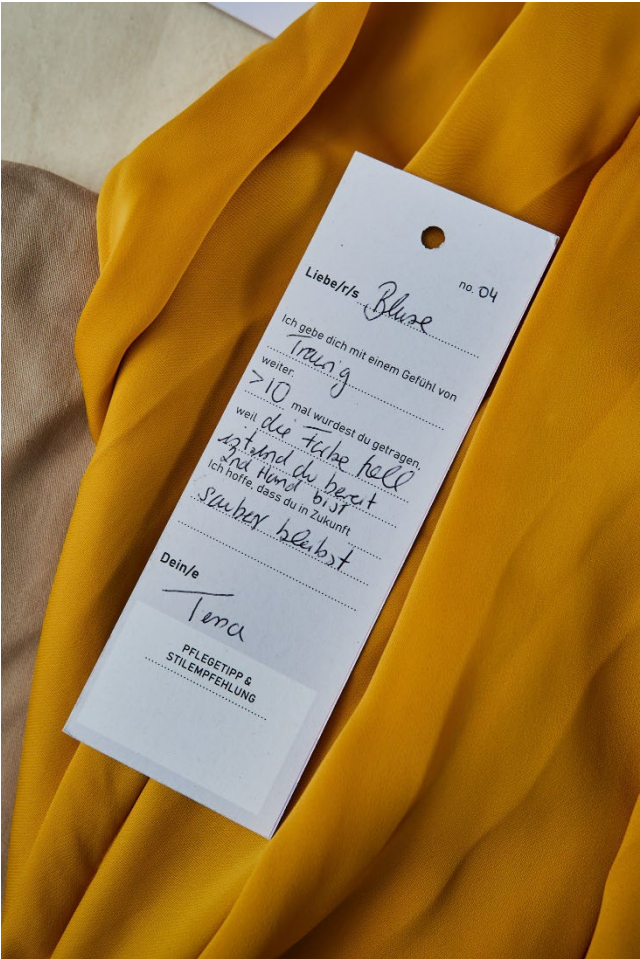 no. 04
Liebe/r/s Bluse
Ich gebe dich mit einem Gefühl von
Traurig
weiter.
>10 mal wurdest du getragen,
weil die Farbe hell
ist und du bereit
2nd Hand bist
Ich hoffe, dass du in Zukunft
sauber bleibst
Dein/e
Tessa
PFLEGETIPP &
STILEMPFEHLUNG